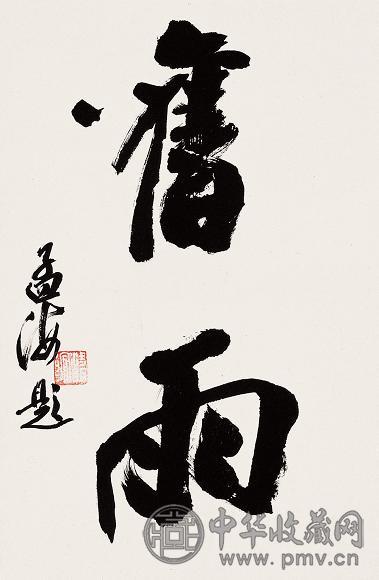 舊雨
孟海題
中华收藏网
www.pmv.cn